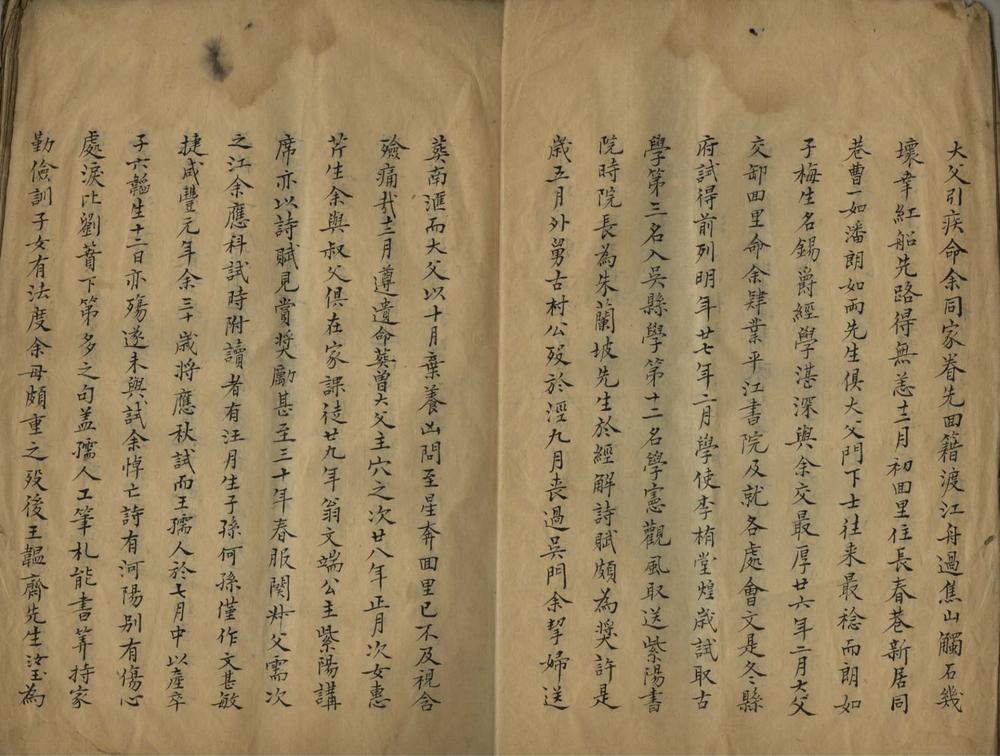 大父引疾命余同家眷先回籍渡江舟過焦山觸石幾
壞幸紅船先路得無恙十二月初回里住長春巷新居同
巷曹一如潘朗如兩先生俱大父門下士往来最稔而朗如
子梅生名錫爵經學湛深與余交最厚廿六年二月大父
交卸回里命余肄業平江書院及就各處會文是冬縣
府試得前列明年廿七年二月學使李栯堂煌歲試取古
學第三名入吳縣學第十二名學憲觀風取送紫陽書
院時院長為朱蘭坡先生於經解詩賦頗為奬許是
歲五月外舅古村公殁於涇九月喪過吳門余挈婦送
葬南滙而大父以十月棄養凶問至星奔回里已不及視含
殮痛哉十二月遵遺命葬曾大父主穴之次廿八年正月次女惠
芹生余與叔父俱在家課徒廿九年翁文端公主紫陽講
席亦以詩賦見賞奬勵甚至三十年春服闋叔父需次
之江余應科試時附讀者有汪月生子孫何孫僅作文甚敏
捷咸豐元年余三十歲將應秋試而王孺人於七月中以產卒
子六龥生十二日亦殤遂未與試余悼亡詩有河陽别有傷心
處淚比劉蕡下第多之句盖孺人工筆札能書筭持家
勤儉訓子女有法度余母頗重之殁後王韞齋先生汝玉為